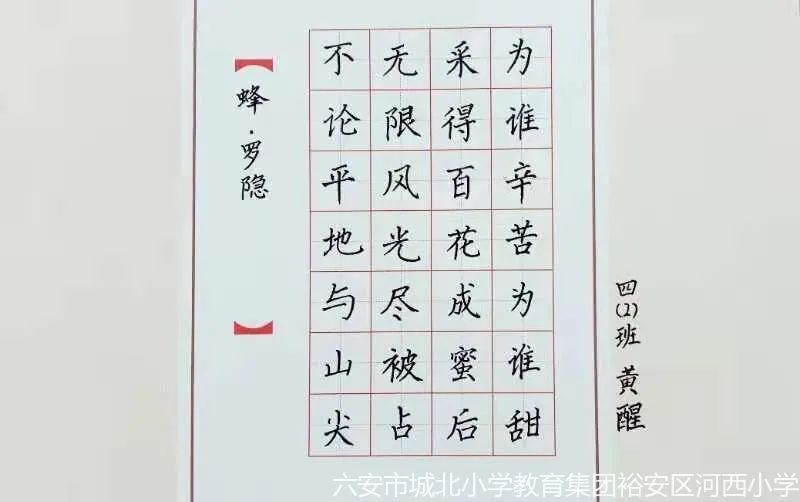 蜂·罗隐
不论平地与山尖
无限风光尽被占
采得百花成蜜后
为谁辛苦为谁甜
四(2)班 黄醒
六安市城北小学教育集团裕安区河西小学